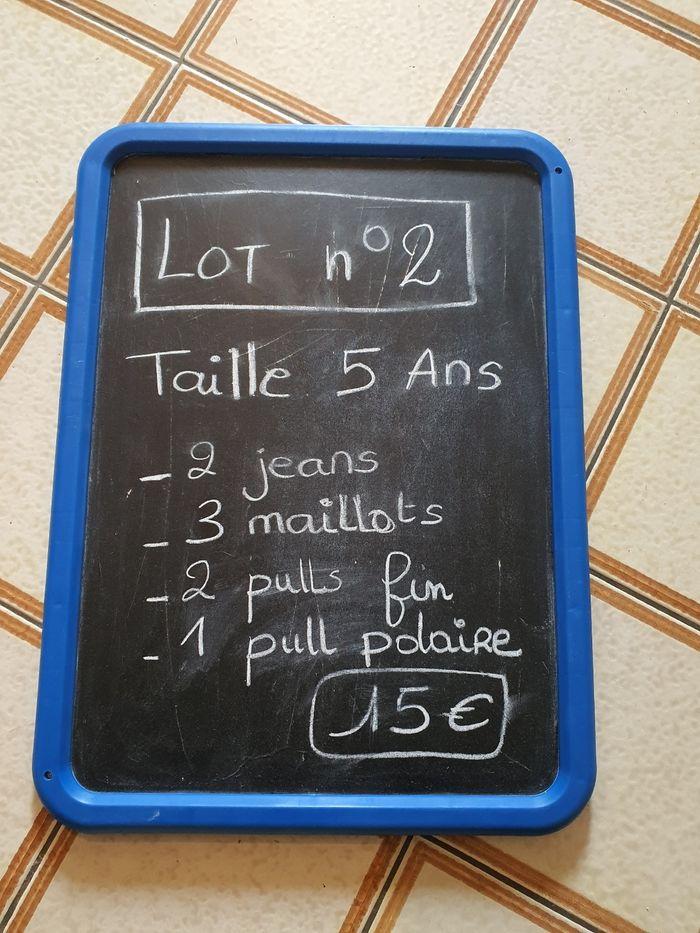 LOT n° 2
Taille 5 Ans
- 2 jeans
- 3 maillots
- 2 pulls fin
- 1 pull polaire
15€